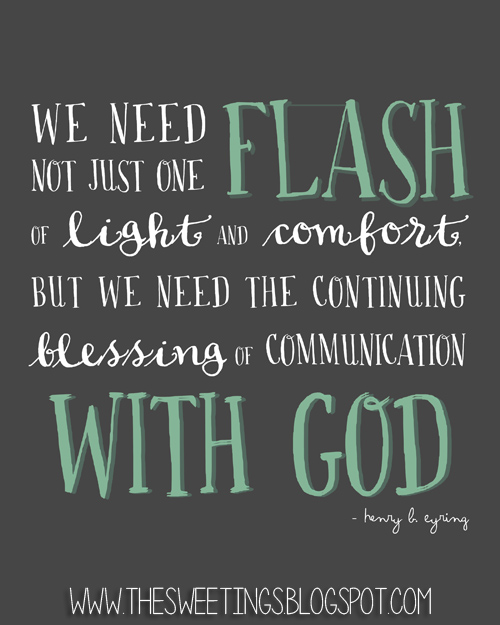 WE NEED FLASH
NOT JUST ONE
OF light AND comfort,
BUT WE NEED THE CONTINUING
blessing OF COMMUNICATION
WITH GOD
- henry b. eyring
WWW.THESWEETINGSBLOGSPOT.COM